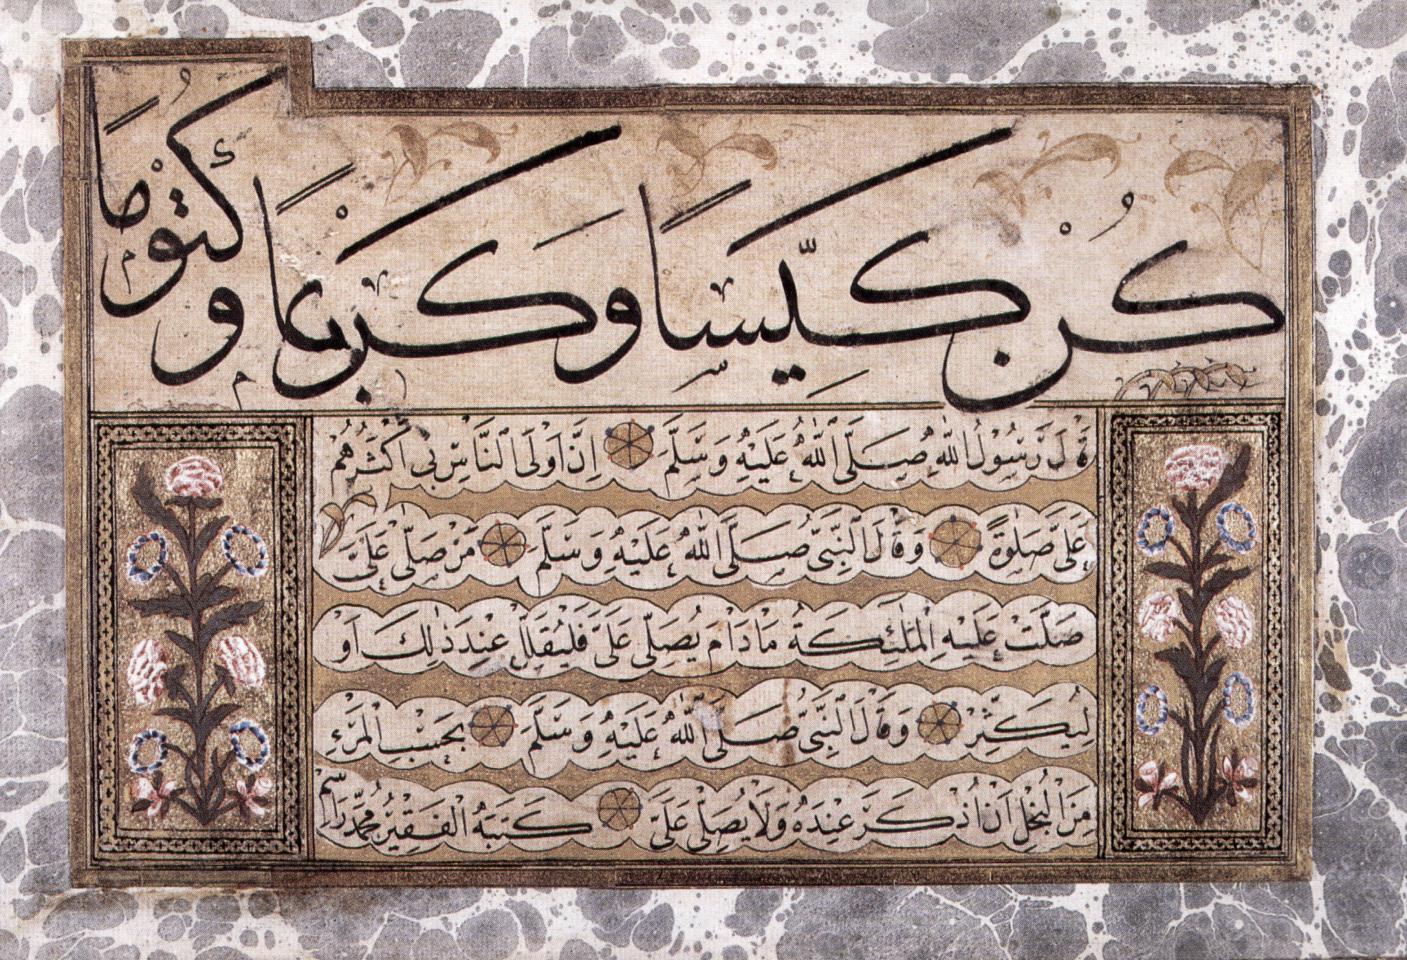 كُنْ كَيِّسًا وَكَرِيمًا وَكَتُومًا
قَالَ رَسُولُ اللهِ صَلَّى اللهُ عَلَيْهِ وَسَلَّمَ اِنَّ اَوْلَى النَّاسِ بِى اَكْثَرُهُمْ
عَلَىَّ صَلٰوةً وَقَالَ النَّبِىُّ صَلَّى اللهُ عَلَيْهِ وَسَلَّمَ مَنْ صَلّٰى عَلَىَّ
صَلَّتْ عَلَيْهِ الْمَلٰئِكَةُ مَادَامَ يُصَلِّى عَلَىَّ فَلْيُقَلِّلْ عِنْدَ ذٰلِكَ اَوْ
لِيُكَثِّرْ وَقَالَ النَّبِىُّ صَلَّى اللهُ عَلَيْهِ وَسَلَّمَ بِحَسْبِ الْمَرْءِ
مِنَ الْبُخْلِ اَنْ اُذْكَرَ عِنْدَهُ وَلَا يُصَلِّى عَلَىَّ كَتَبَهُ الْفَقِيرُ مُحَمَّد رَاسِم